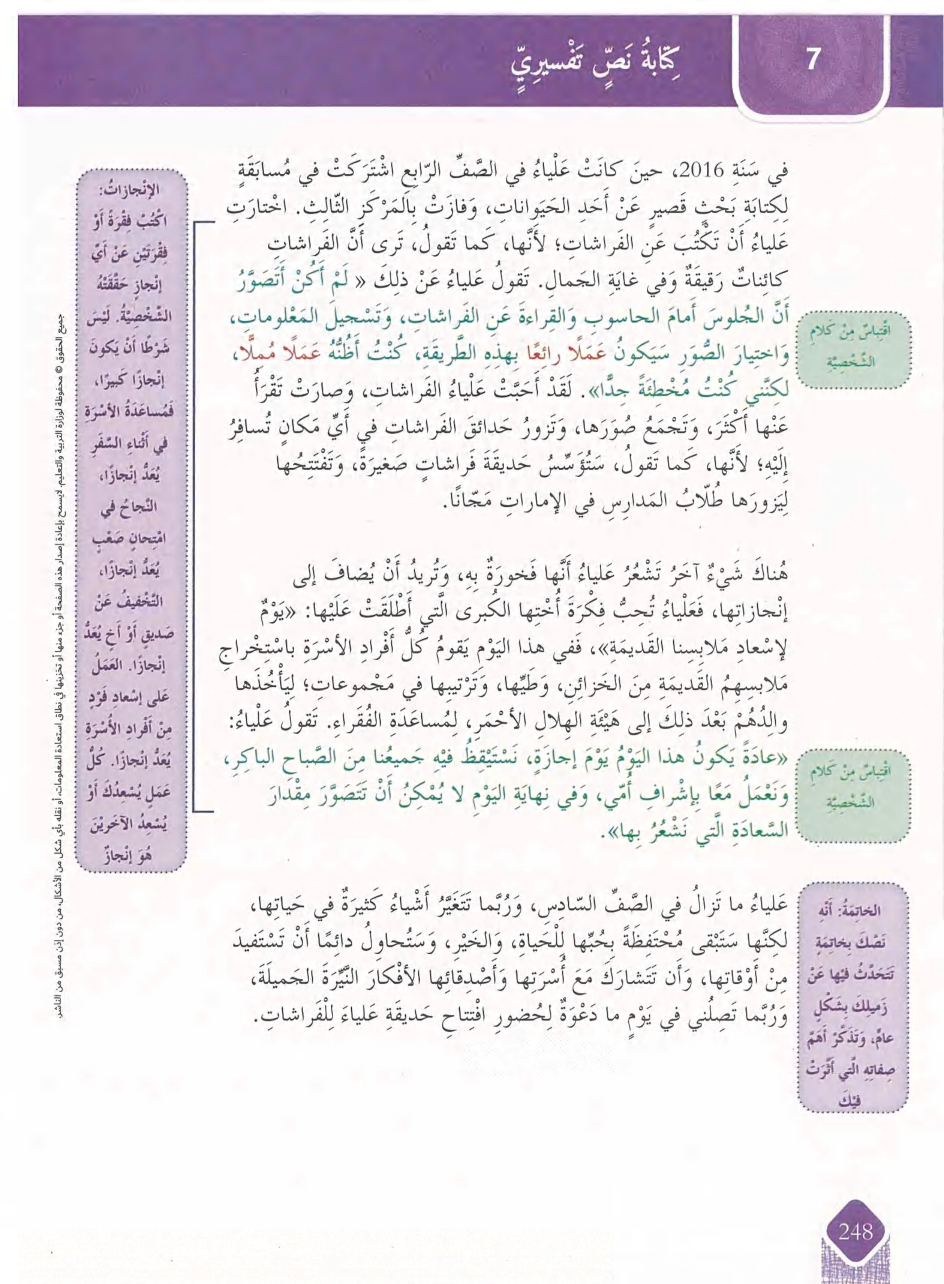 7
كِتابةُ نَصٍّ تَفْسيرِيٍّ
في سَنَةِ 2016، حينَ كانَتْ عَلْياءُ في الصَّفِّ الرّابِعِ اشْتَرَكَتْ في مُسابَقَةٍ
لِكِتابَةِ بَحْثٍ قَصيرٍ عَنْ أَحَدِ الحَيَواناتِ، وَفازَتْ بِالمَرْكَزِ الثّالِثِ. اخْتارَتِ
عَلياءُ أَنْ تَكْتُبَ عَنِ الفَراشاتِ؛ لأنَّها، كَما تَقولُ، تَرى أَنَّ الفَراشاتِ
كائِناتٌ رَقيقَةٌ وَفي غايَةِ الجَمالِ. تَقولُ عَلياءُ عَنْ ذلِكَ « لَمْ أَكُنْ أَتَصَوَّرُ
أَنَّ الجُلوسَ أَمامَ الحاسوبِ وَالقِراءةَ عَنِ الفَراشاتِ، وَتَسْجيلَ المَعْلوماتِ،
وَاختِيارَ الصُّوَرِ سَيَكونُ عَمَلًا رائِعًا بِهذِهِ الطَّريقَةِ، كُنْتُ أَظُنُّهُ عَمَلًا مُمِلًّا،
لكِنَّني كُنْتُ مُخْطِئَةً جدًّا». لَقَدْ أَحَبَّتْ عَلْياءُ الفَراشاتِ، وَصارَتْ تَقْرَأُ
عَنْها أَكْثَرَ، وَتَجْمَعُ صُوَرَها، وَتَزورُ حَدائقَ الفَراشاتِ في أَيِّ مَكانٍ تُسافِرُ
إِلَيْهِ؛ لأَنَّها، كَما تَقولُ، سَتُؤَسِّسُ حَديقَةَ فَراشاتٍ صَغيرَةً، وَتَفْتَتِحُها
لِيَزورَها طُلّابُ المَدارِسِ في الإماراتِ مَجّانًا.
هُناكَ شَيْءٌ آخَرُ تَشْعُرُ عَلياءُ أَنَّها فَخورَةٌ بِهِ، وَتُريدُ أَنْ يُضافَ إلى
إنْجازاتِها، فَعَلْياءُ تُحِبُّ فِكْرَةَ أُخْتِها الكُبرى الَّتي أَطْلَقَتْ عَلَيْها: «يَوْمٌ
لإسْعادِ مَلابِسِنا القَديمَةِ»، فَفي هذا اليَوْمِ يَقومُ كُلُّ أَفْرادِ الأسْرَةِ باسْتِخْراجِ
مَلابِسِهِمُ القَديمَةِ مِنَ الخَزائِنِ، وَطَيِّها، وَتَرْتيبِها في مَجْموعاتٍ؛ لِيَأْخُذَها
والِدُهُمْ بَعْدَ ذلِكَ إلى هَيْئَةِ الهِلالِ الأحْمَرِ، لِمُساعَدَةِ الفُقَراءِ. تَقولُ عَلْياءُ:
«عادَةً يَكونُ هذا اليَوْمُ يَوْمَ إجازَةٍ، نَسْتَيْقِظُ فيْهِ جَميعُنا مِنَ الصَّباحِ الباكِرِ،
وَنَعْمَلُ مَعًا بِإشْرافِ أُمّي، وَفي نِهايَةِ اليَوْمِ لا يُمْكِنُ أَنْ تَتَصَوَّرَ مِقْدارَ
السَّعادَةِ الَّتي نَشْعُرُ بِها».
عَلياءُ ما تَزالُ في الصَّفِّ السّادِسِ، وَرُبَّما تَتَغَيَّرُ أَشْياءُ كَثيرَةٌ في حَياتِها،
لكِنَّها سَتَبْقى مُحْتَفِظَةً بِحُبِّها لِلْحَياةِ، وَالخَيْرِ، وَسَتُحاوِلُ دائِمًا أَنْ تَسْتَفيدَ
مِنْ أَوْقاتِها، وَأَن تَتَشارَكَ مَعَ أُسْرَتِها وَأَصْدِقائِها الأفْكارَ النَّيِّرَةَ الجَميلَةَ،
وَرُبَّما تَصِلُني في يَوْمٍ ما دَعْوَةٌ لِحُضورِ افْتِتاحِ حَديقَةِ عَلياءَ لِلْفَراشاتِ.
اقْتِباسٌ مِنْ كَلامِ
الشَّخْصِيَّةِ
اقْتِباسٌ مِنْ كَلامِ
الشَّخْصِيَّةِ
الخاتِمَةُ: أَنْهِ
نَصَّكَ بِخاتِمَةٍ
تَتَحَدَّثُ فيْها عَنْ
زَميلِكَ بِشَكْلٍ
عامٍّ، وَتَذكُرُ أَهَمَّ
صِفاتِهِ الَّتي أَثَّرَتْ
فيْكَ
الإنْجازاتُ:
اكْتُبْ فِقْرَةً أَوْ
فِقْرَتَيْنِ عَنْ أَيِّ
إنْجازٍ حَقَّقَتْهُ
الشَّخْصِيَّةُ. لَيْسَ
شَرْطًا أَنْ يَكونَ
إنْجازًا كَبيرًا،
فَمُساعَدَةُ الأسْرَةِ
في أَثْناءِ السَّفَرِ
يُعَدُّ إنْجازًا،
النَّجاحُ في
امْتِحانٍ صَعْبٍ
يُعَدُّ إنْجازًا،
التَّخْفيفُ عَنْ
صَديقٍ أَوْ أَخٍ يُعَدُّ
إنْجازًا. العَمَلُ
عَلى إسْعادِ فَرْدٍ
مِنْ أَفْرادِ الأُسْرَةِ
يُعَدُّ إنْجازًا. كُلُّ
عَمَلٍ يُسْعِدُكَ أَوْ
يُسْعِدُ الآخَرِيْنَ
هُوَ إنْجازٌ
جميع الحقوق © محفوظة لوزارة التربية والتعليم. لايسمح بإعادة إصدار هذه الصفحة أو جزء منها أو تخزينها في نطاق استعادة المعلومات، أو نقله بأي شكل من الأشكال، من دون إذن مسبق من الناشر.
248